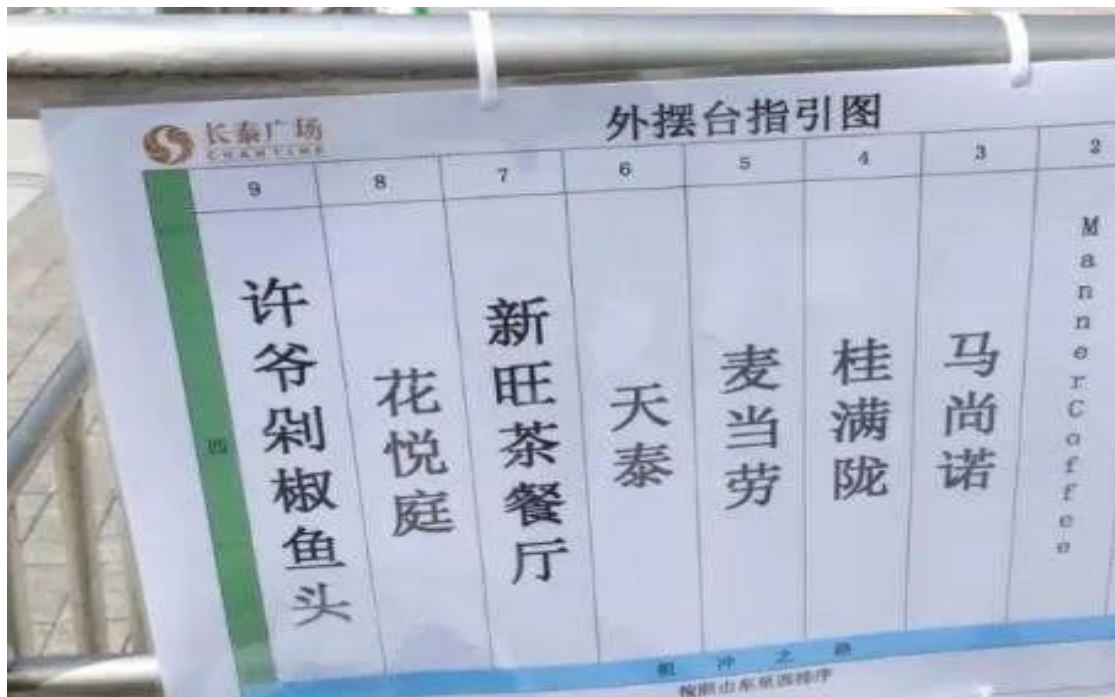 长泰广场
外摆台指引图
9 8 7 6 5 4 3 2
西
许爷剁椒鱼头
花悦庭
新旺茶餐厅
天泰
麦当劳
桂满陇
马尚诺
MannerCoffee
祖冲之路
按照由东至西排序